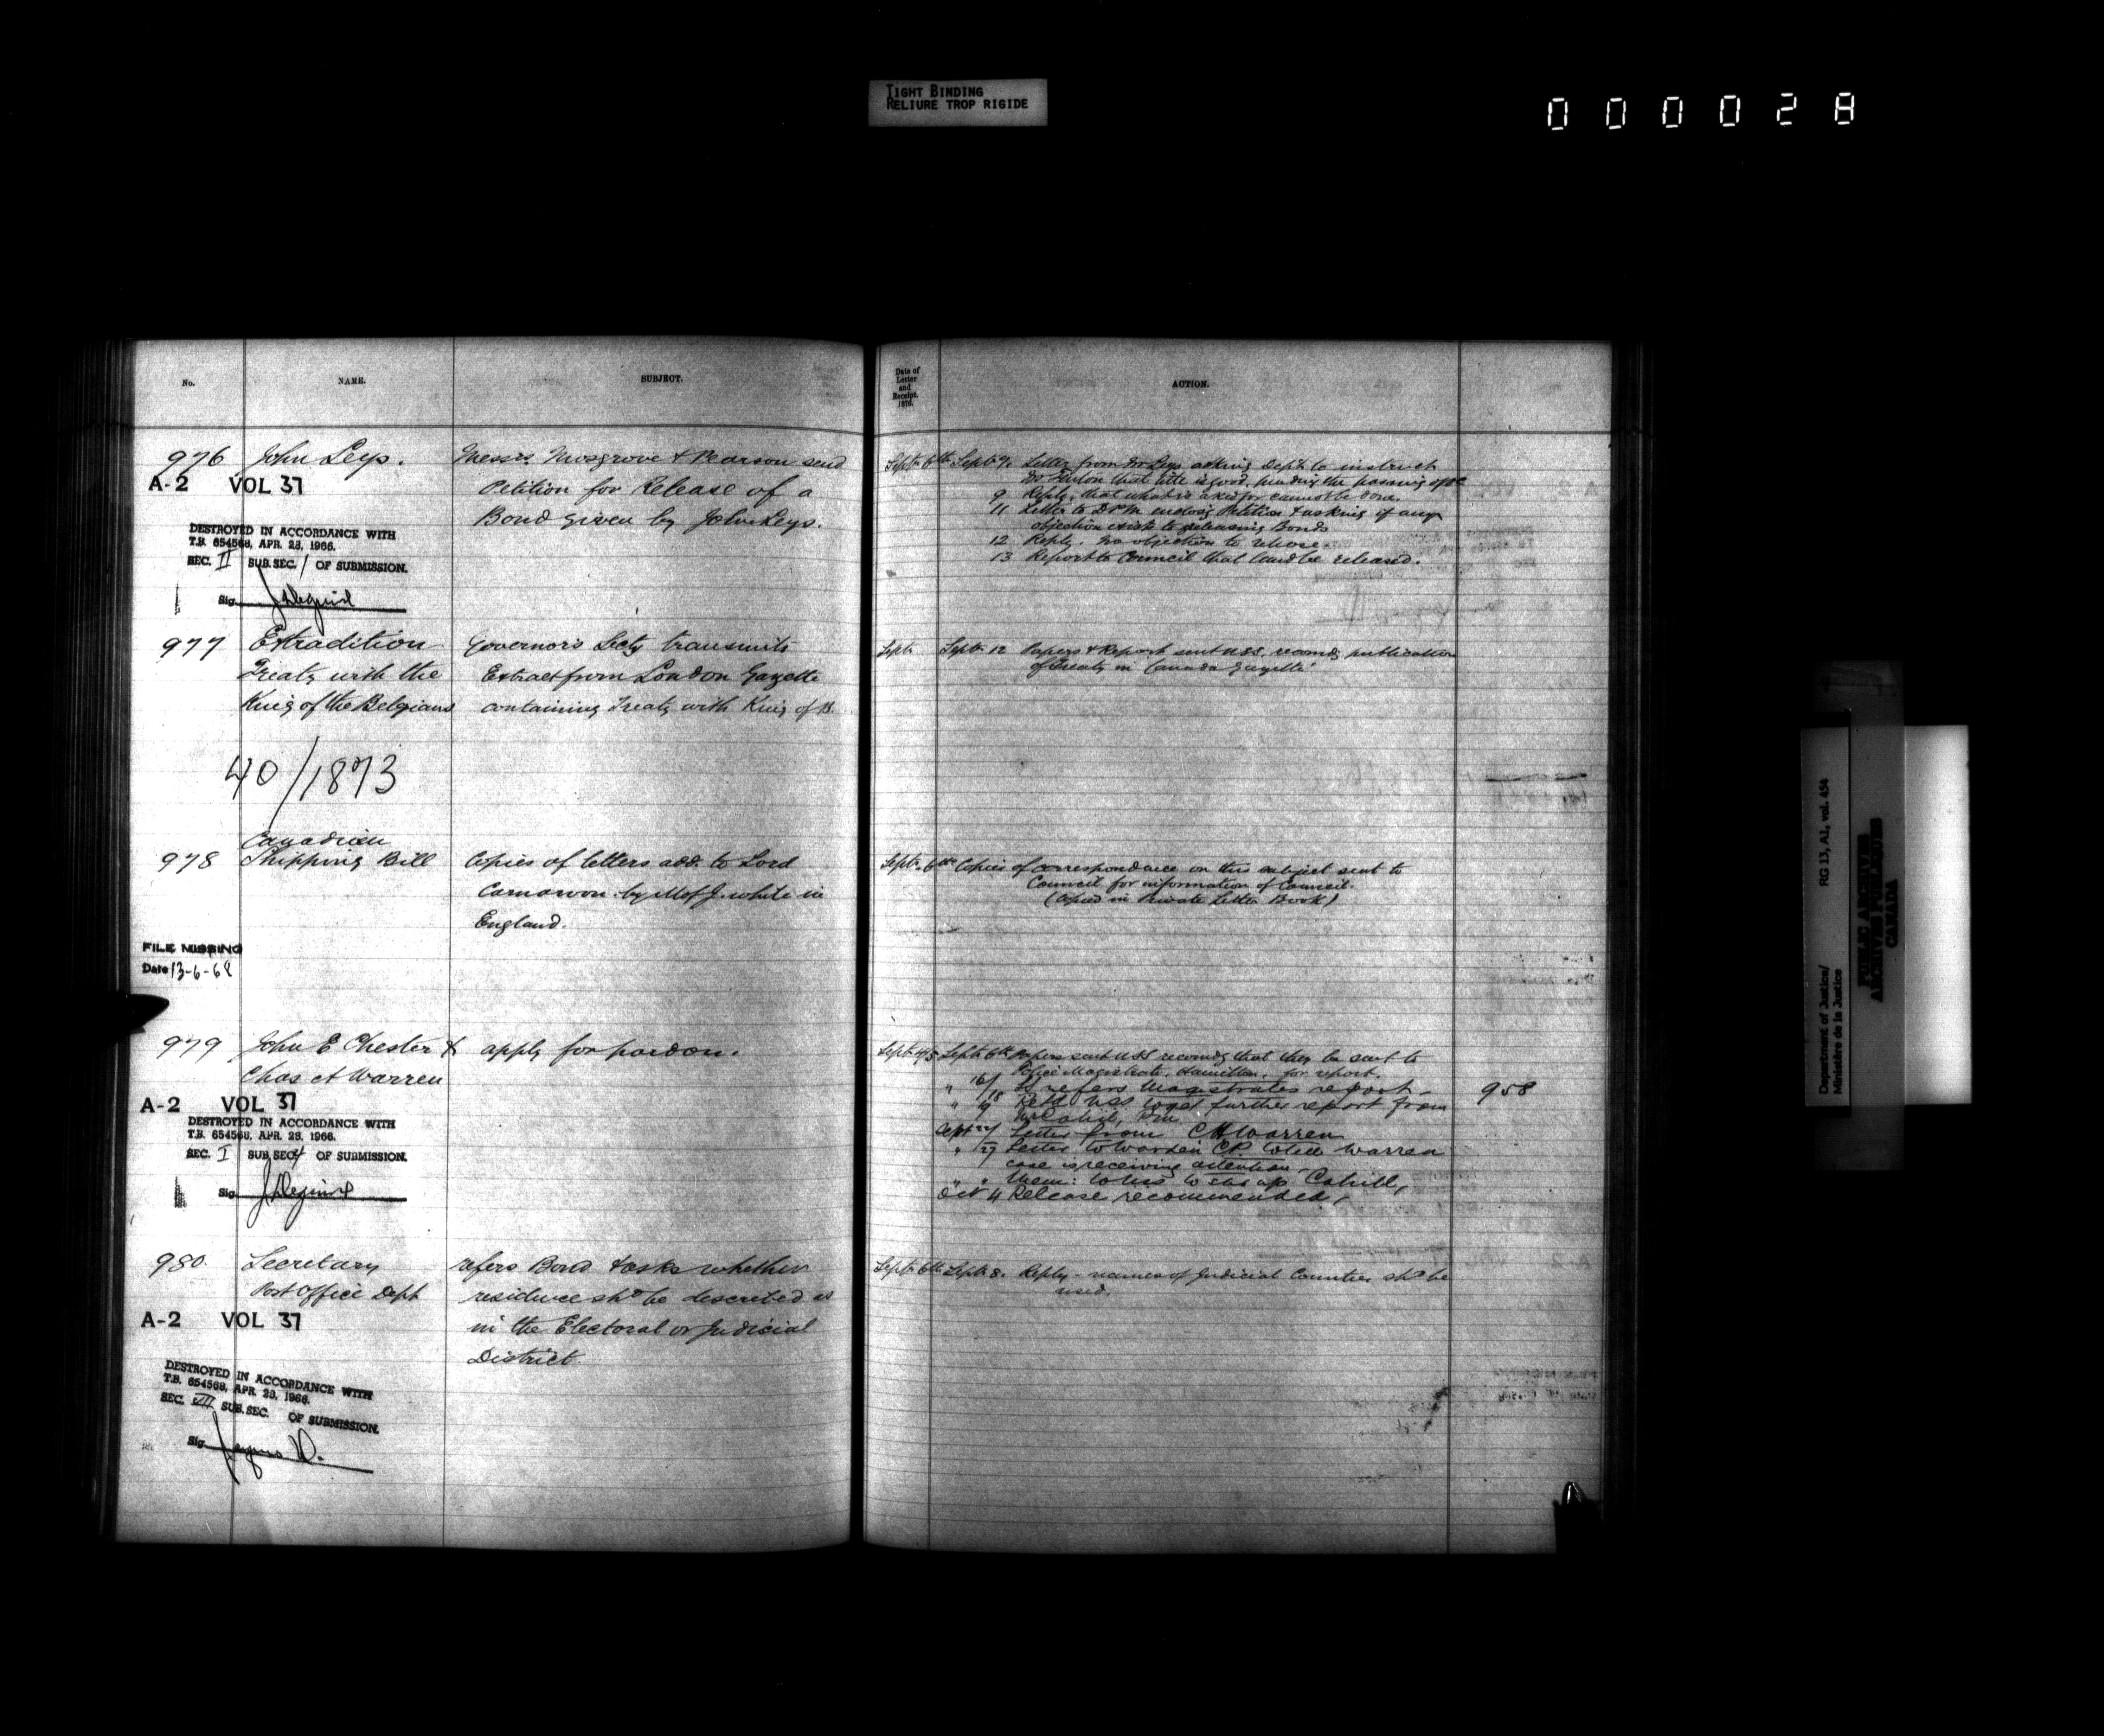 TIGHT BINDING
RELIURE TROP RIGIDE
000028
No.
NAME.
SUBJECT.
Date of
Letter
and
Receipt.
1876.
ACTION.
976 John Leys.
Messrs. Mosgrove & Pearson send
Petition for Release of a
Bond given by John Leys.
A-2 VOL 37
DESTROYED IN ACCORDANCE WITH
T.B. 654568, APR. 23, 1966.
SEC. II SUB. SEC. 1 OF SUBMISSION.
Sig.
Sept. 6th Sept. 9. Letter from Mr Leys asking Dept to instruct
that title is good, pending the passing of
9 Reply, that what is asked for cannot be done.
11 Letter to enclosg Petition & asking if any
objection exists to releasing Bonds
12 Reply. No objection to release.
13 Report to Council that land be released.
977 Extradition
Treaty with the
King of the Belgians
Governor's Secty transmits
Extract from London Gazette
containing Treaty with King of B.
Sept. Sept. 12 Papers & Report sent U.S.S. recomdg publication
of Treaty in Canada Gazette
40/1873
978 Canadian
Shipping Bill
Copies of letters add. to Lord
Carnarvon by M of J. while in
England.
Sept. 6th Copies of correspondence on this subject sent to
Council for information of Council.
(Copied in Private Letter Book)
FILE MISSING
Date 13-6-68
979 John E Chester &
Chas A Warren
apply for pardon.
A-2 VOL 37
DESTROYED IN ACCORDANCE WITH
T.B. 654568, APR. 23, 1966.
SEC. I SUB. SEC. 4 OF SUBMISSION.
Sig.
Sept. 4/5 Sept. 6th Papers sent USS recomdg that they be sent to
Police Magistrate, Hamilton, for report.
" 16/18 refers Magistrates report
" 19 Retd USS to get further report from
Mr Cahill, PM
Sept 24/ Letter from C A Warren
" 27 Letter to Warden CP to tell Warren
case is receiving attention
" " Mem: to USS to stir up Cahill,
Oct 4 Release recommended,
958
980. Secretary
Post Office Dept
refers Bond & asks whether
residence shd be described as
in the Electoral or Judicial
District.
A-2 VOL 37
DESTROYED IN ACCORDANCE WITH
T.B. 654568, APR. 23, 1966.
SEC. VII SUB. SEC. OF SUBMISSION.
Sig.
Sept. 6th Sept. 8. Reply - names of Judicial Counties shd be
used.
Department of Justice/
Ministère de la Justice
RG 13, A1, vol. 454
PUBLIC ARCHIVES
ARCHIVES PUBLIQUES
CANADA